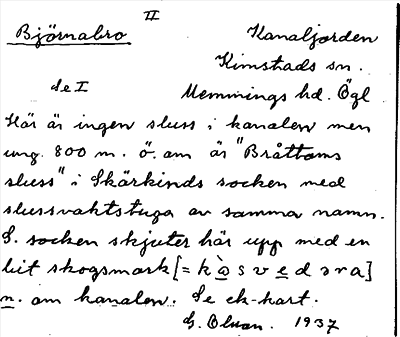 II
Björnabro Kanaljorden
Kimstads sn.
Se I Memmings hd. Ögl
Här är ingen sluss i kanalen men
ung. 800 m. ö. om är "Bråttoms
sluss" i Skärkinds socken med
slussvaktstuga av samma namn.
S. socken skjuter här upp med en
bit skogsmark [= k
n. om kanalen. Se ek-kart.
G. Olson. 1937